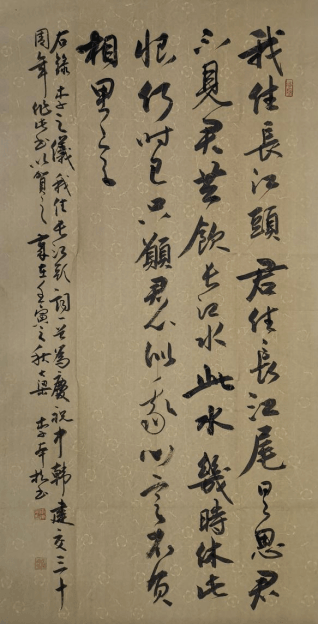 我住長江頭君住長江尾日日思君
不見君共飲長江水此水幾時休此
恨何時已只願君心似我心定不負
相思意
右錄李之儀我住長江頭詞一首為慶祝中韓建交三十
周年作此以賀之歲在壬寅之秋